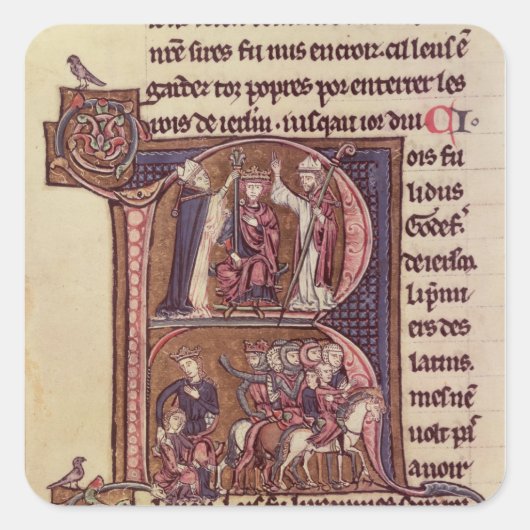 nr̄e sires fu mis en croiz. cil leus ē
garder toz p̱opres por enterrer les
rois de ierl̄m. iusqau ior dui CI.
R
ois fu
li dus
Godef᷑.
de ierl̄sa
li p̱mi
ers des
latins.
mes nē
uolt pas
auoir